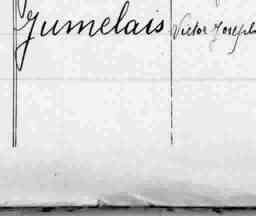 Jumelais Victor Joseph